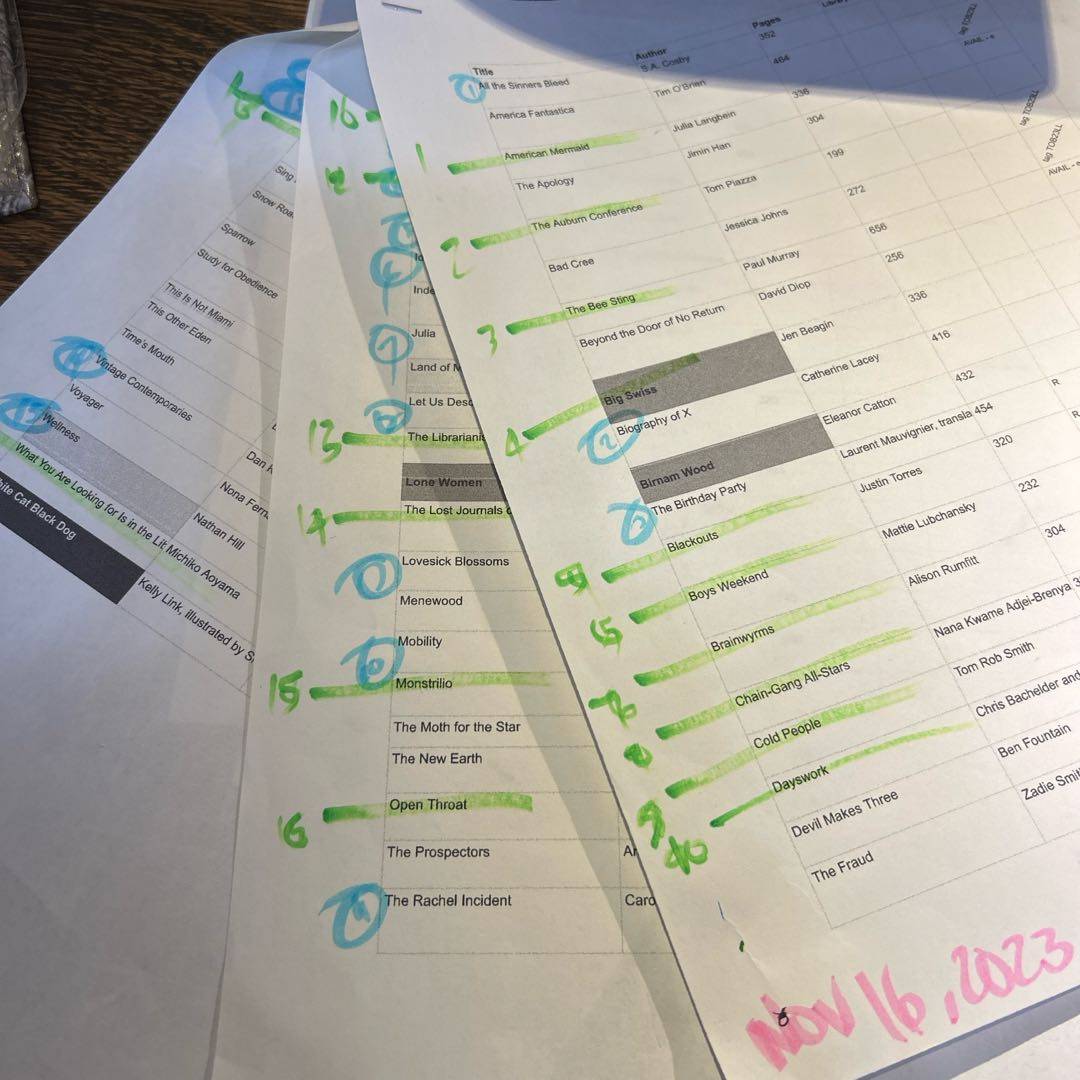 Title Author Pages
1 All the Sinners Bleed S.A. Cosby 352
America Fantastica Tim O'Brien 464
1 American Mermaid Julia Langbein 336
The Apology Jimin Han 304
2 The Auburn Conference Tom Piazza 199
Bad Cree Jessica Johns 272
3 The Bee Sting Paul Murray 656
Beyond the Door of No Return David Diop 256
4 Big Swiss Jen Beagin 336
2 Biography of X Catherine Lacey 416
Birnam Wood Eleanor Catton 432
The Birthday Party Laurent Mauvignier, transla 454
Blackouts Justin Torres 320
Boys Weekend Mattie Lubchansky 232
Brainwyrms Alison Rumfitt 304
Chain-Gang All-Stars Nana Kwame Adjei-Brenya
Cold People Tom Rob Smith
9 Dayswork Chris Bachelder and
10 Devil Makes Three Ben Fountain
The Fraud Zadie Smi
AVAIL - e
tag TOB23LL
tag TOB23LL
AVAIL - e
R
R
NOV 16, 2023
16
Inde
7 Julia
Land of
Let Us Des
13 The Librarian
Lone Women
14 The Lost Journals
Lovesick Blossoms
Menewood
Mobility
15 Monstrilio
The Moth for the Star
The New Earth
16 Open Throat
The Prospectors
The Rachel Incident Caro
Sing
Snow Roa
Sparrow
Study for Obedience
This Is Not Miami
This Other Eden
Time's Mouth
Vintage Contemporaries Dan
Voyager Nona Fern
Wellness Nathan Hill
What You Are Looking for Is in the Lit Michiko Aoyama
ite Cat Black Dog Kelly Link, illustrated by S